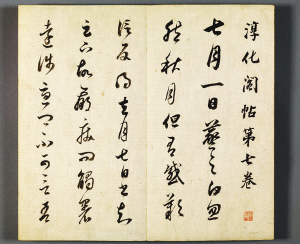 淳化閣帖第七卷
七月一日羲之白忽
然秋月但有感歎
信反得去月七日書知
足下故羸疾問觸暑
遠涉憂卿不可言吾